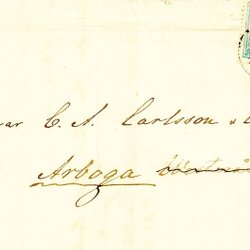 C. A. Carlsson &
Arboga